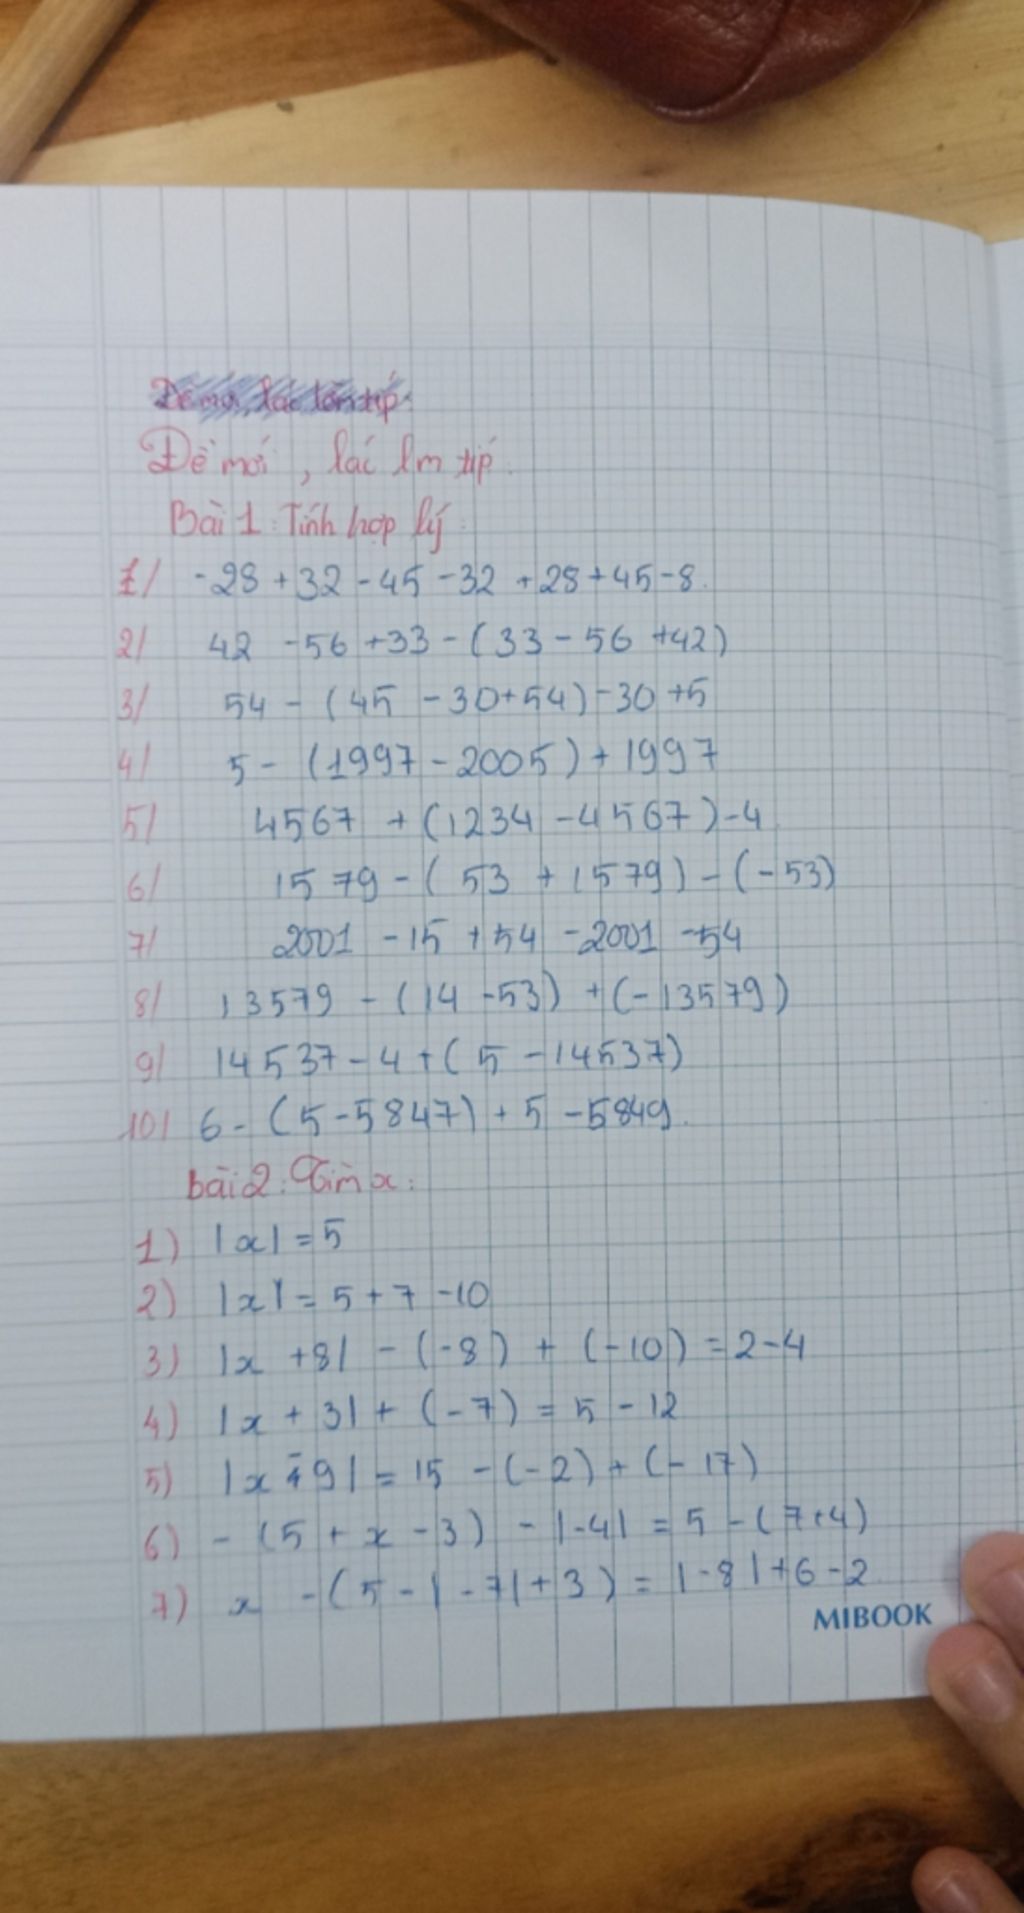 Đề mới, lác lm tiếp.
Bài 1: Tính hợp lý:
1/ -28 + 32 - 45 - 32 + 28 + 45 - 8.
2/ 42 - 56 + 33 - (33 - 56 + 42)
3/ 54 - (45 - 30 + 54) - 30 + 5
4/ 5 - (1997 - 2005) + 1997
5/ 4567 + (1234 - 4567) - 4
6/ 1579 - (53 + 1579) - (-53)
7/ 2001 - 15 + 54 - 2001 - 54
8/ 13579 - (14 - 53) + (-13579)
9/ 14537 - 4 + (5 - 14537)
10/ 6 - (5 - 5847) + 5 - 5849.
bài 2: Tìm x:
1) |x| = 5
2) |x| = 5 + 7 - 10
3) |x + 8| - (-8) + (-10) = 2 - 4
4) |x + 3| + (-7) = 5 - 12
5) |x - 9| = 15 - (-2) + (-17)
6) - (5 + x - 3) - |-4| = 5 - (7 + 4)
7) x - (5 - |-7| + 3) = |-8| + 6 - 2
MIBOOK